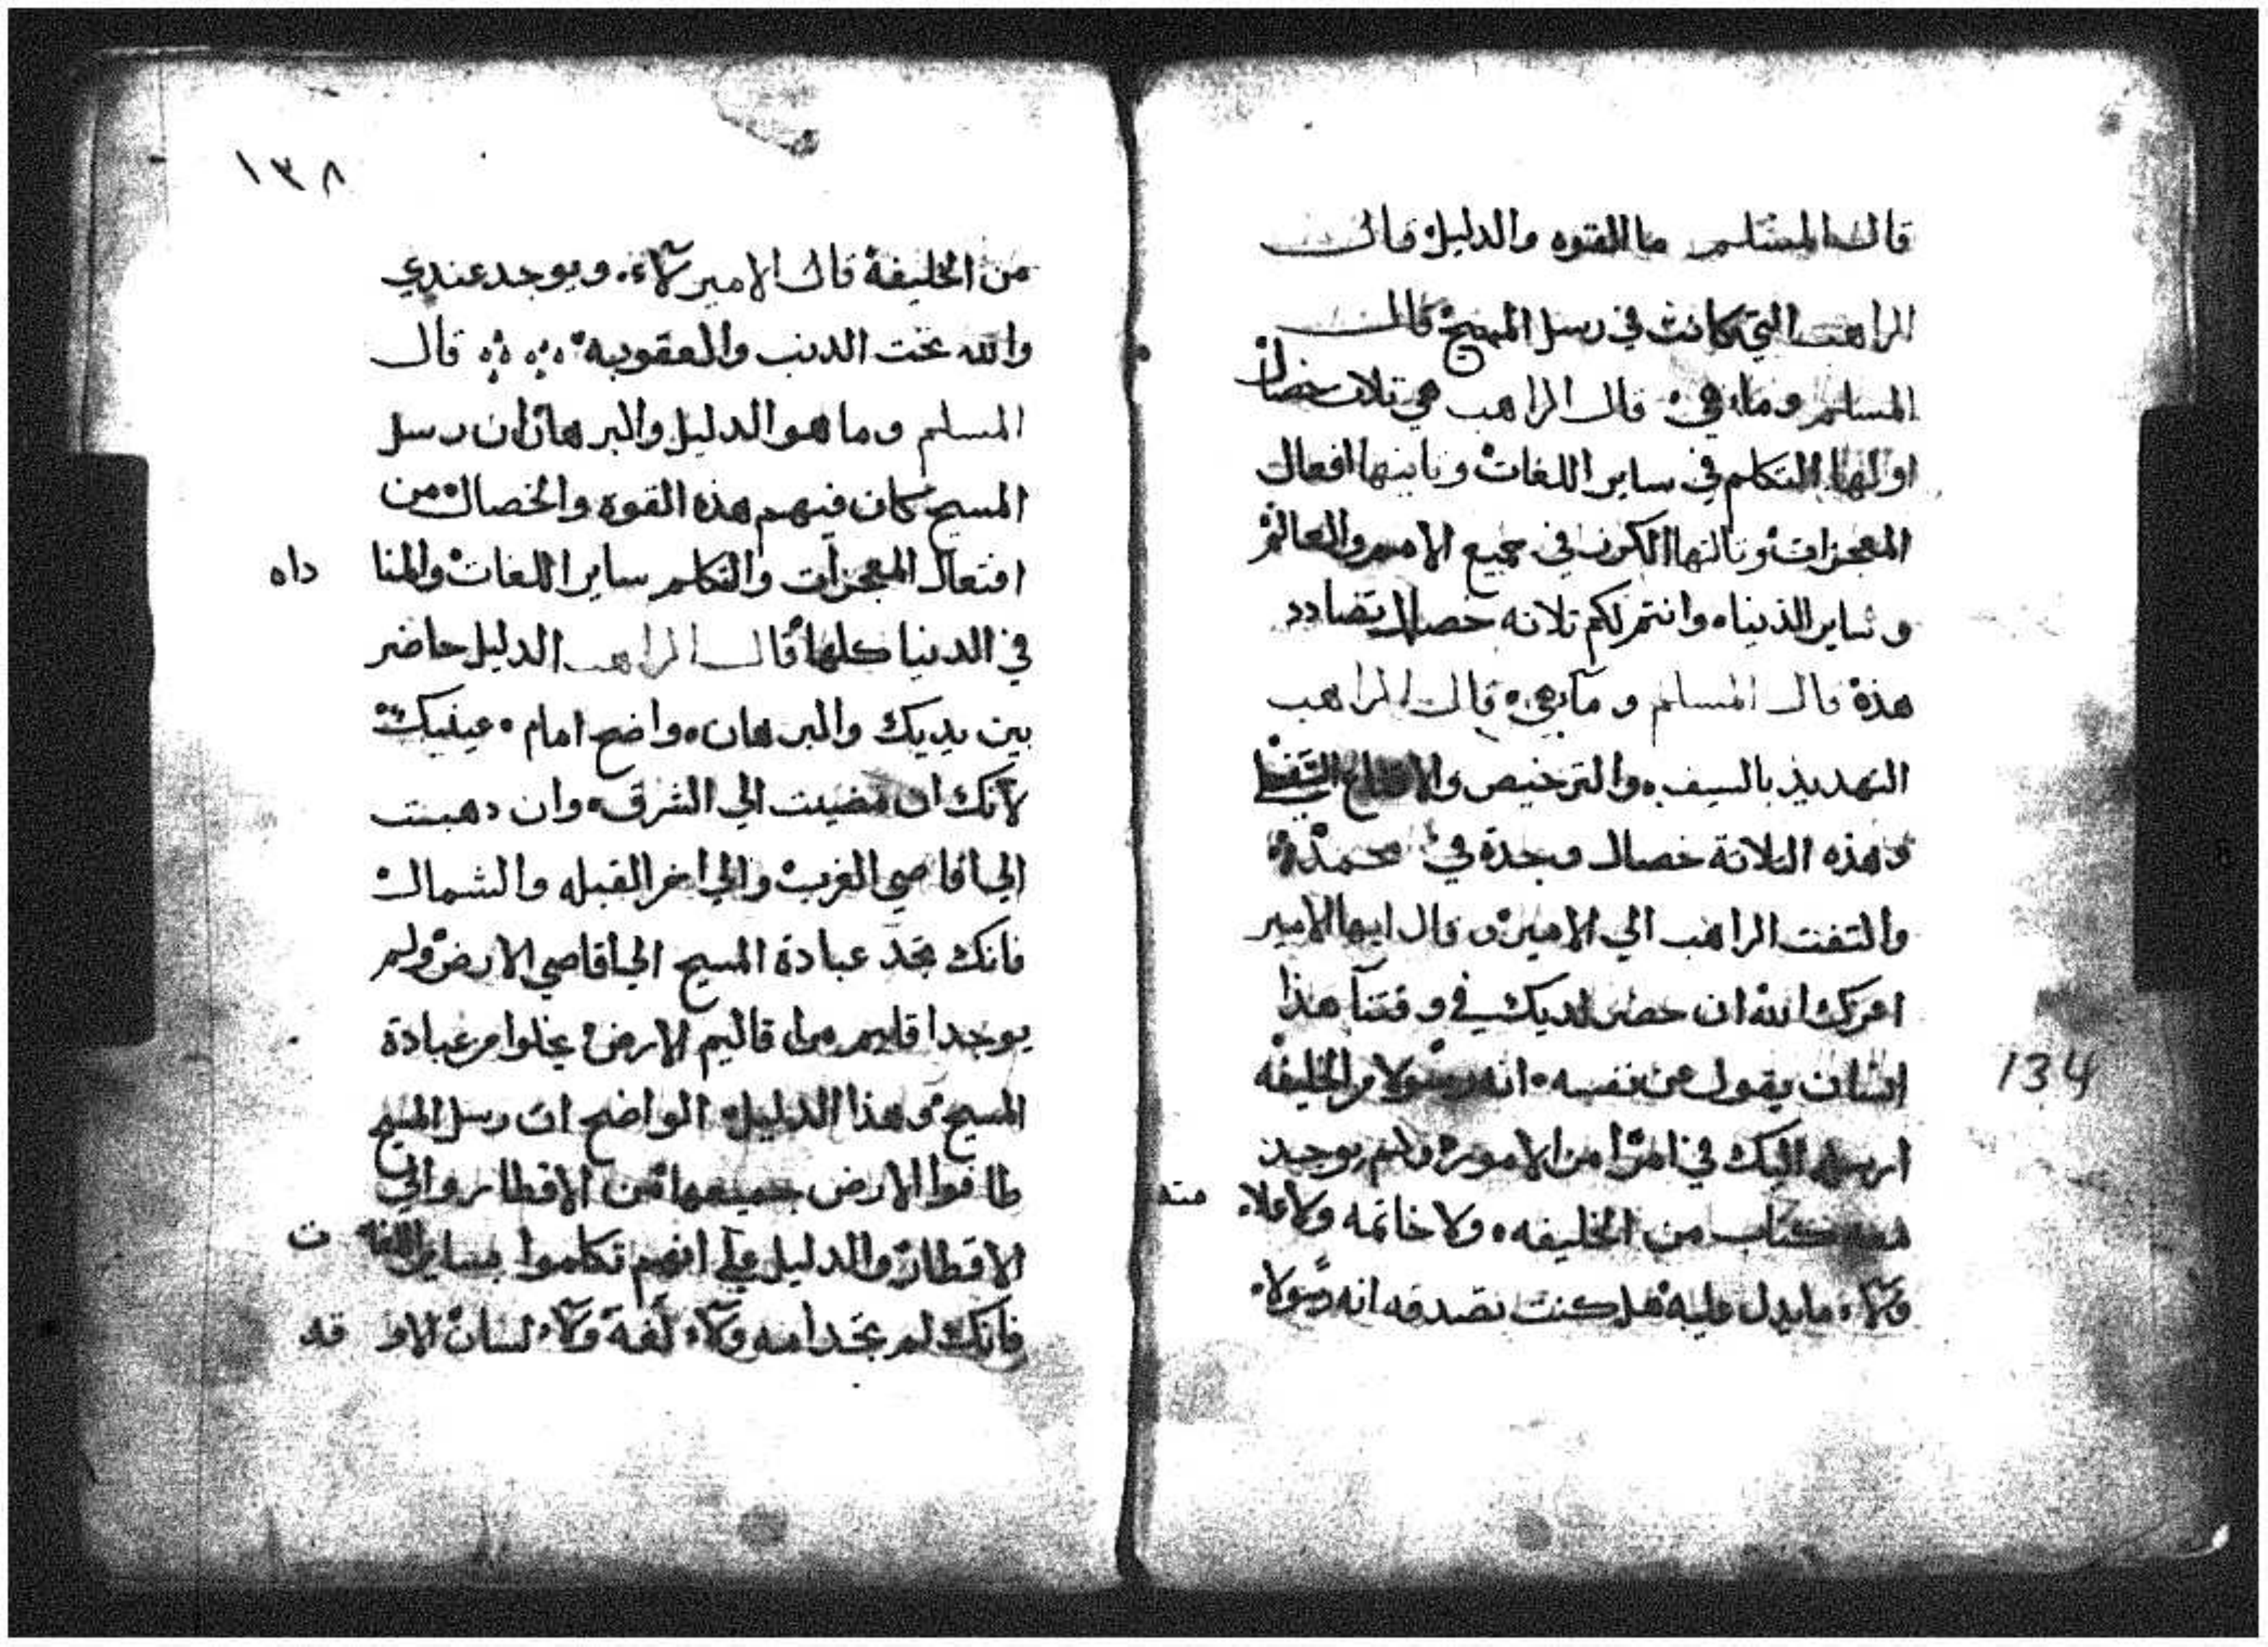 قال المسلم ما القوه والدليل قال
الراهب التي كانت في رسل المسيح قال
المسلم وما هي قال الراهب هي تلات خصال
اولها التكلم في ساير اللغات وتانيها افعال
المعجزات وتالتها الكرز في جميع الامم والعالم
وساير الدنيا وانتم لكم تلاته خصال تضادد
هذة قال المسلم وما هي قال الراهب
التهديد بالسيف والترخيص
وهذه التلاتة خصال وجدة في محمد
والتفت الراهب الي الامير وقال ايها الامير
اعزك الله ان حضر لديك في وقتنا هذا
انسان يقول عن نفسه انه رسولا من الخليفه
ارسله اليك في امرا من الامور ولم يوجد
معه كتاب من الخليفه ولا خاتمه ولا علامته
ولا ما يدل عليه هل كنت تصدقه انه رسولا
134
١٣٨
من الخليفة قال الامير لاء ويوجد عندي
والله تحت الدنب والعقوبه قال
المسلم وما هو الدليل والبرهان ان رسل
المسيح كان فيهم هذه القوة والخصال من
افتعال المعجزات والتكلم ساير اللغات والمناداه
في الدنيا كلها قال الراهب الدليل حاضر
بين يديك والبرهان واضح امام عينيك
لانك ان مضيت الي الشرق وان دهبت
الي اقاصي الغرب والي اخر القبله والشمال
فانك تجد عبادة المسيح الي اقاصي الارض ولم
يوجد اقليم من اقاليم الارض يخلوا من عبادة
المسيح وهذا الدليل الواضح ان رسل المسيح
طافوا الارض جميعها من الاقطار والي
الاقطار والدليل علي انهم تكلموا بساير اللغات
فانك لم تجد امه ولا لغة ولا لسان الا وقد